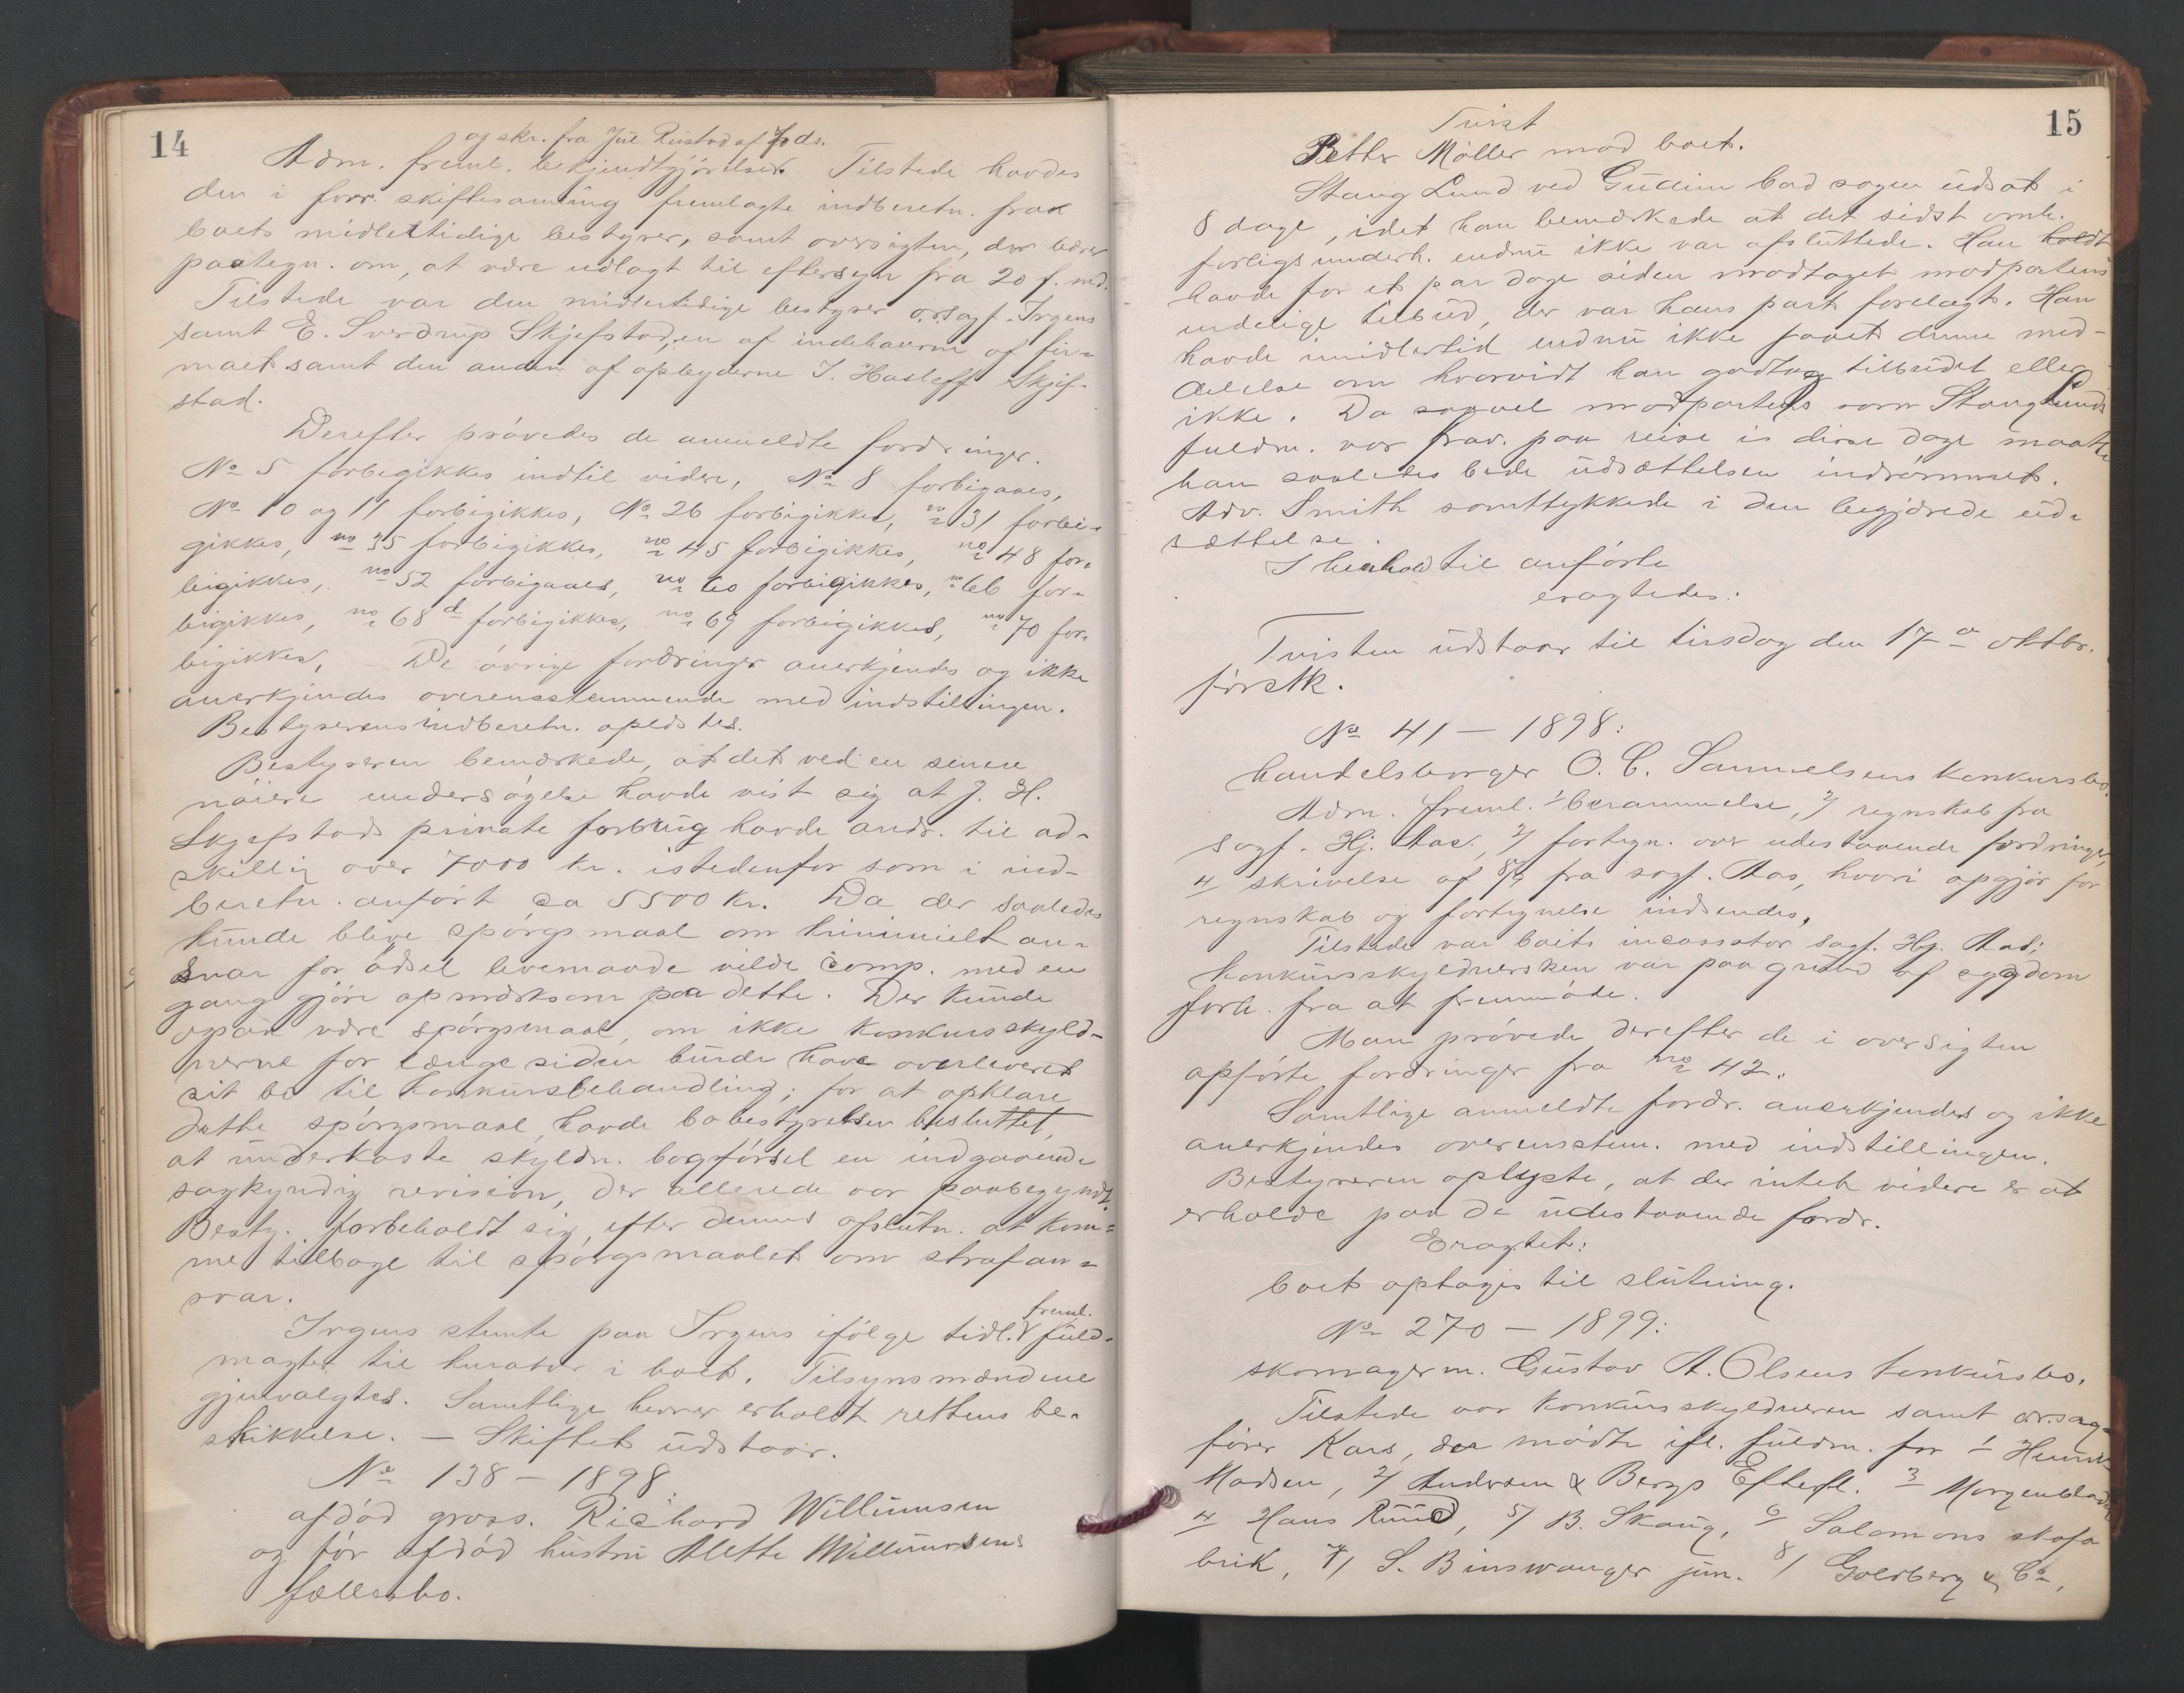 14
og skr. fra Jul Rustad af ds.
Adm. freml. bekjendtgjörelser Tilstede havdes
den i forr. skiftesamling fremlagte indberetn. fra
boets midlertidige bestyrer, samt oversigten, der bærer
paategn. om, at være udlagt til eftersyn fra 20 f. md.
Tilstede var den midlertidige bestyrer o.r.sagf. Irgens
samt E. Sverdrup Skjefstad, en af indehaverne af fir-
maet samt den anden af opbyderne J. Hasleff Skjef-
stad.
Derefter prövedes de anmeldte fordringer.
No 5 forbigikkes indtil videre, No 8 forbigaaes,
No 10 og 11 forbigikkes, No 26 forbigikkes, no 31 forbi-
gikkes, no 35 forbigikkes, no 45 forbigikkes, no 48 for-
bigikkes, no 52 forbigaaes, no 60 forbigikkes, no 66 for-
bigikkes, no 68 d forbigikkes, no 69 forbigikkes, no 70 for-
bigikkes, De övrige fordringer anerkjendes og ikke
anerkjendes overensstemmende med indstillingen.
Bestyrerens indberetn. oplæstes.
Bestyreren bemærkede, at det ved en senere
nöiere undersögelse havde vist sig at J. H.
Skjefstads private forbrug havde andr. til ad-
skillig over 7000 kr. istedenfor som i ind-
beretn. anfört ca 5500 kr. Da der saaledes
kunde blive spörgsmaal om kriminielt an-
svar for ödsel levemaade vilde comp. med en
gang gjöre opmærksom paa dette. Der kunde
ogsaa være spörgsmaal, om ikke konkursskyld-
nerne for længe siden burde have overleveret
sit bo til konkursbehandling; for at opklare
dette spörgsmaal, havde bobestyrelsen besluttet,
at underkaste skyldn. bogförsel en indgaaende
sagkyndig revision, der allerede var paabegyndt.
Besty. forbeholdt sig, efter dennes afslutn. at kom-
me tilbage til spörgsmaalet om strafan-
svar.
freml.
Irgens stemte paa Irgens ifölge tidl. fuld-
magter til kurator i boet. Tilsynsmændene
gjenvalgtes. Samtlige herrer erholdt rettens be-
skikkelse. — Skiftet udstaar.
No 138 – 1898:
afdöd gross. Richard Willumsen
og för afdöd hustru Alette Willumsens
fællesbo.
15
Tvist
Petter Möller mod boet.
Stang Lund ved Gullim bad sagen udsat i
8 dage, idet han bemærkede at det sidst omh.
forligsunderh. endnu ikke var afsluttede. Han holdt
havde for et par dage siden modtaget modpartens
endelige tilbud, der var hans part forelagt. Han
havde imidlertid endnu ikke faaet denne med-
delelse om hvorvidt han godtog tilbudet eller
ikke. Da saavel modpartens som Stang Lunds
fuldm. var frav. paa reise i disse dage maatte
han saaledes bede udsættelsen indrömmet.
Adv. Smith samtykkede i den begjærede ud-
sættelse.
I henhold til anförte
eragtedes:
Tvisten udstaar til tirsdag den 17 oktbr.
förstk.
No 41 – 1898:
handelsborger O. C. Samuelsens konkursbo.
Adm. freml. 1 berammelse, 2/ regnskab fra
sagf. Hj. Aas, 3/ fortegn. over udestaaende fordringer,
4 skrivelse af fra sagf. Aas, hvori opgjör for
regnskab og fortegnelse indsendes,
Tilstede var boets incassator sagf. Hj. Aas;
konkursskyldnersken var paa grund af sygdom
forh. fra at fremmöde.
Man prövede derefter de i oversigten
opförte fordringer fra no 42.
Samtlige anmeldte fordr. anerkjendes og ikke
anerkjendes overensstem. med indstillingen.
Bestyreren oplyste, at der intet videre er at
erholde paa de udestaaende fordr.
Eragtet:
boet optages til slutning.
No 270 – 1899:
skomagerm. Gustav A. Olsens konkursbo.
Tilstede var konkursskyldneren samt o.r.sag-
förer Kars, der mödte ifl. fuldm. for 1
Madsen, 2/ Andersen & Bergs Efterfl. 3 Morgenbladet
4 Hans Ruud, 5/ B. Skaug, 6/ Salomons skofa
brik, 7/ S. Binswanger jun. 8/ Goldberg & Co,